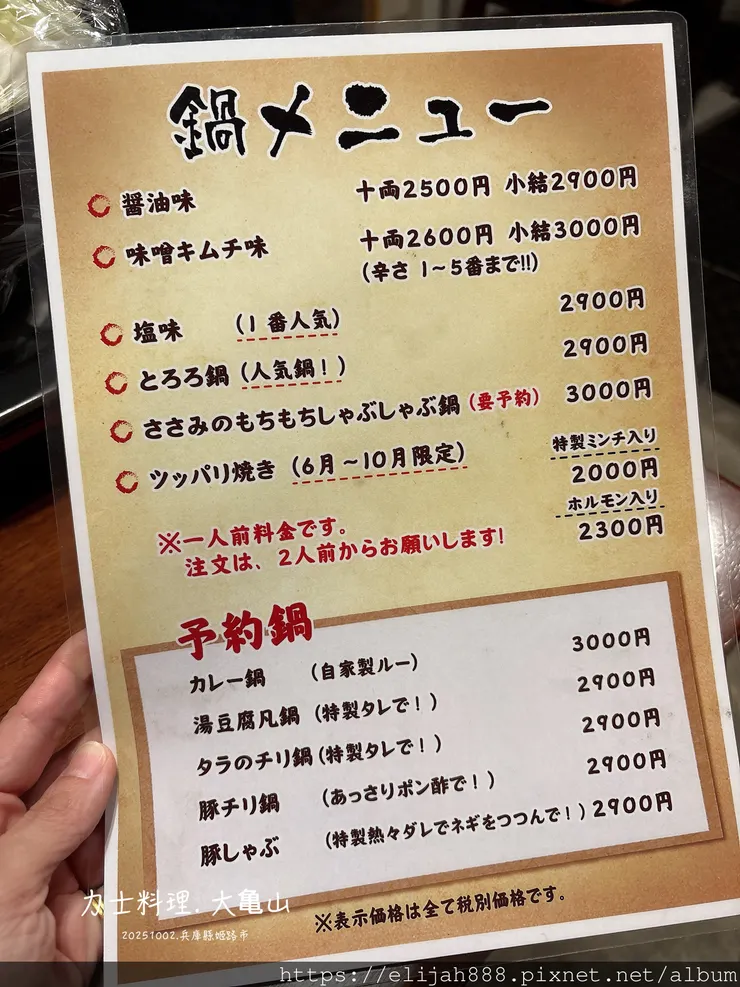 鍋メニュー
醤油味 十両2500円 小結2900円
味噌キムチ味 十両2600円 小結3000円
(辛さ 1~5番まで!!)
塩味 (1番人気) 2900円
とろろ鍋 (人気鍋!) 2900円
ささみのもちもちしゃぶしゃぶ鍋(要予約) 3000円
ツッパリ焼き (6月~10月限定) 特製ミンチ入り
2000円
ホルモン入り
2300円
※一人前料金です。
注文は、2人前からお願いします!
予約鍋
カレー鍋 (自家製ルー) 3000円
湯豆腐凡鍋 (特製タレで!) 2900円
タラのチリ鍋(特製タレで!) 2900円
豚チリ鍋 (あっさりポン酢で!) 2900円
豚しゃぶ (特製熱々ダレでネギをつつんで!) 2900円
※表示価格は全て税別価格です。
力士料理.大亀山
20251002.兵庫縣姬路市
https://elijah888.pixnet.net/album